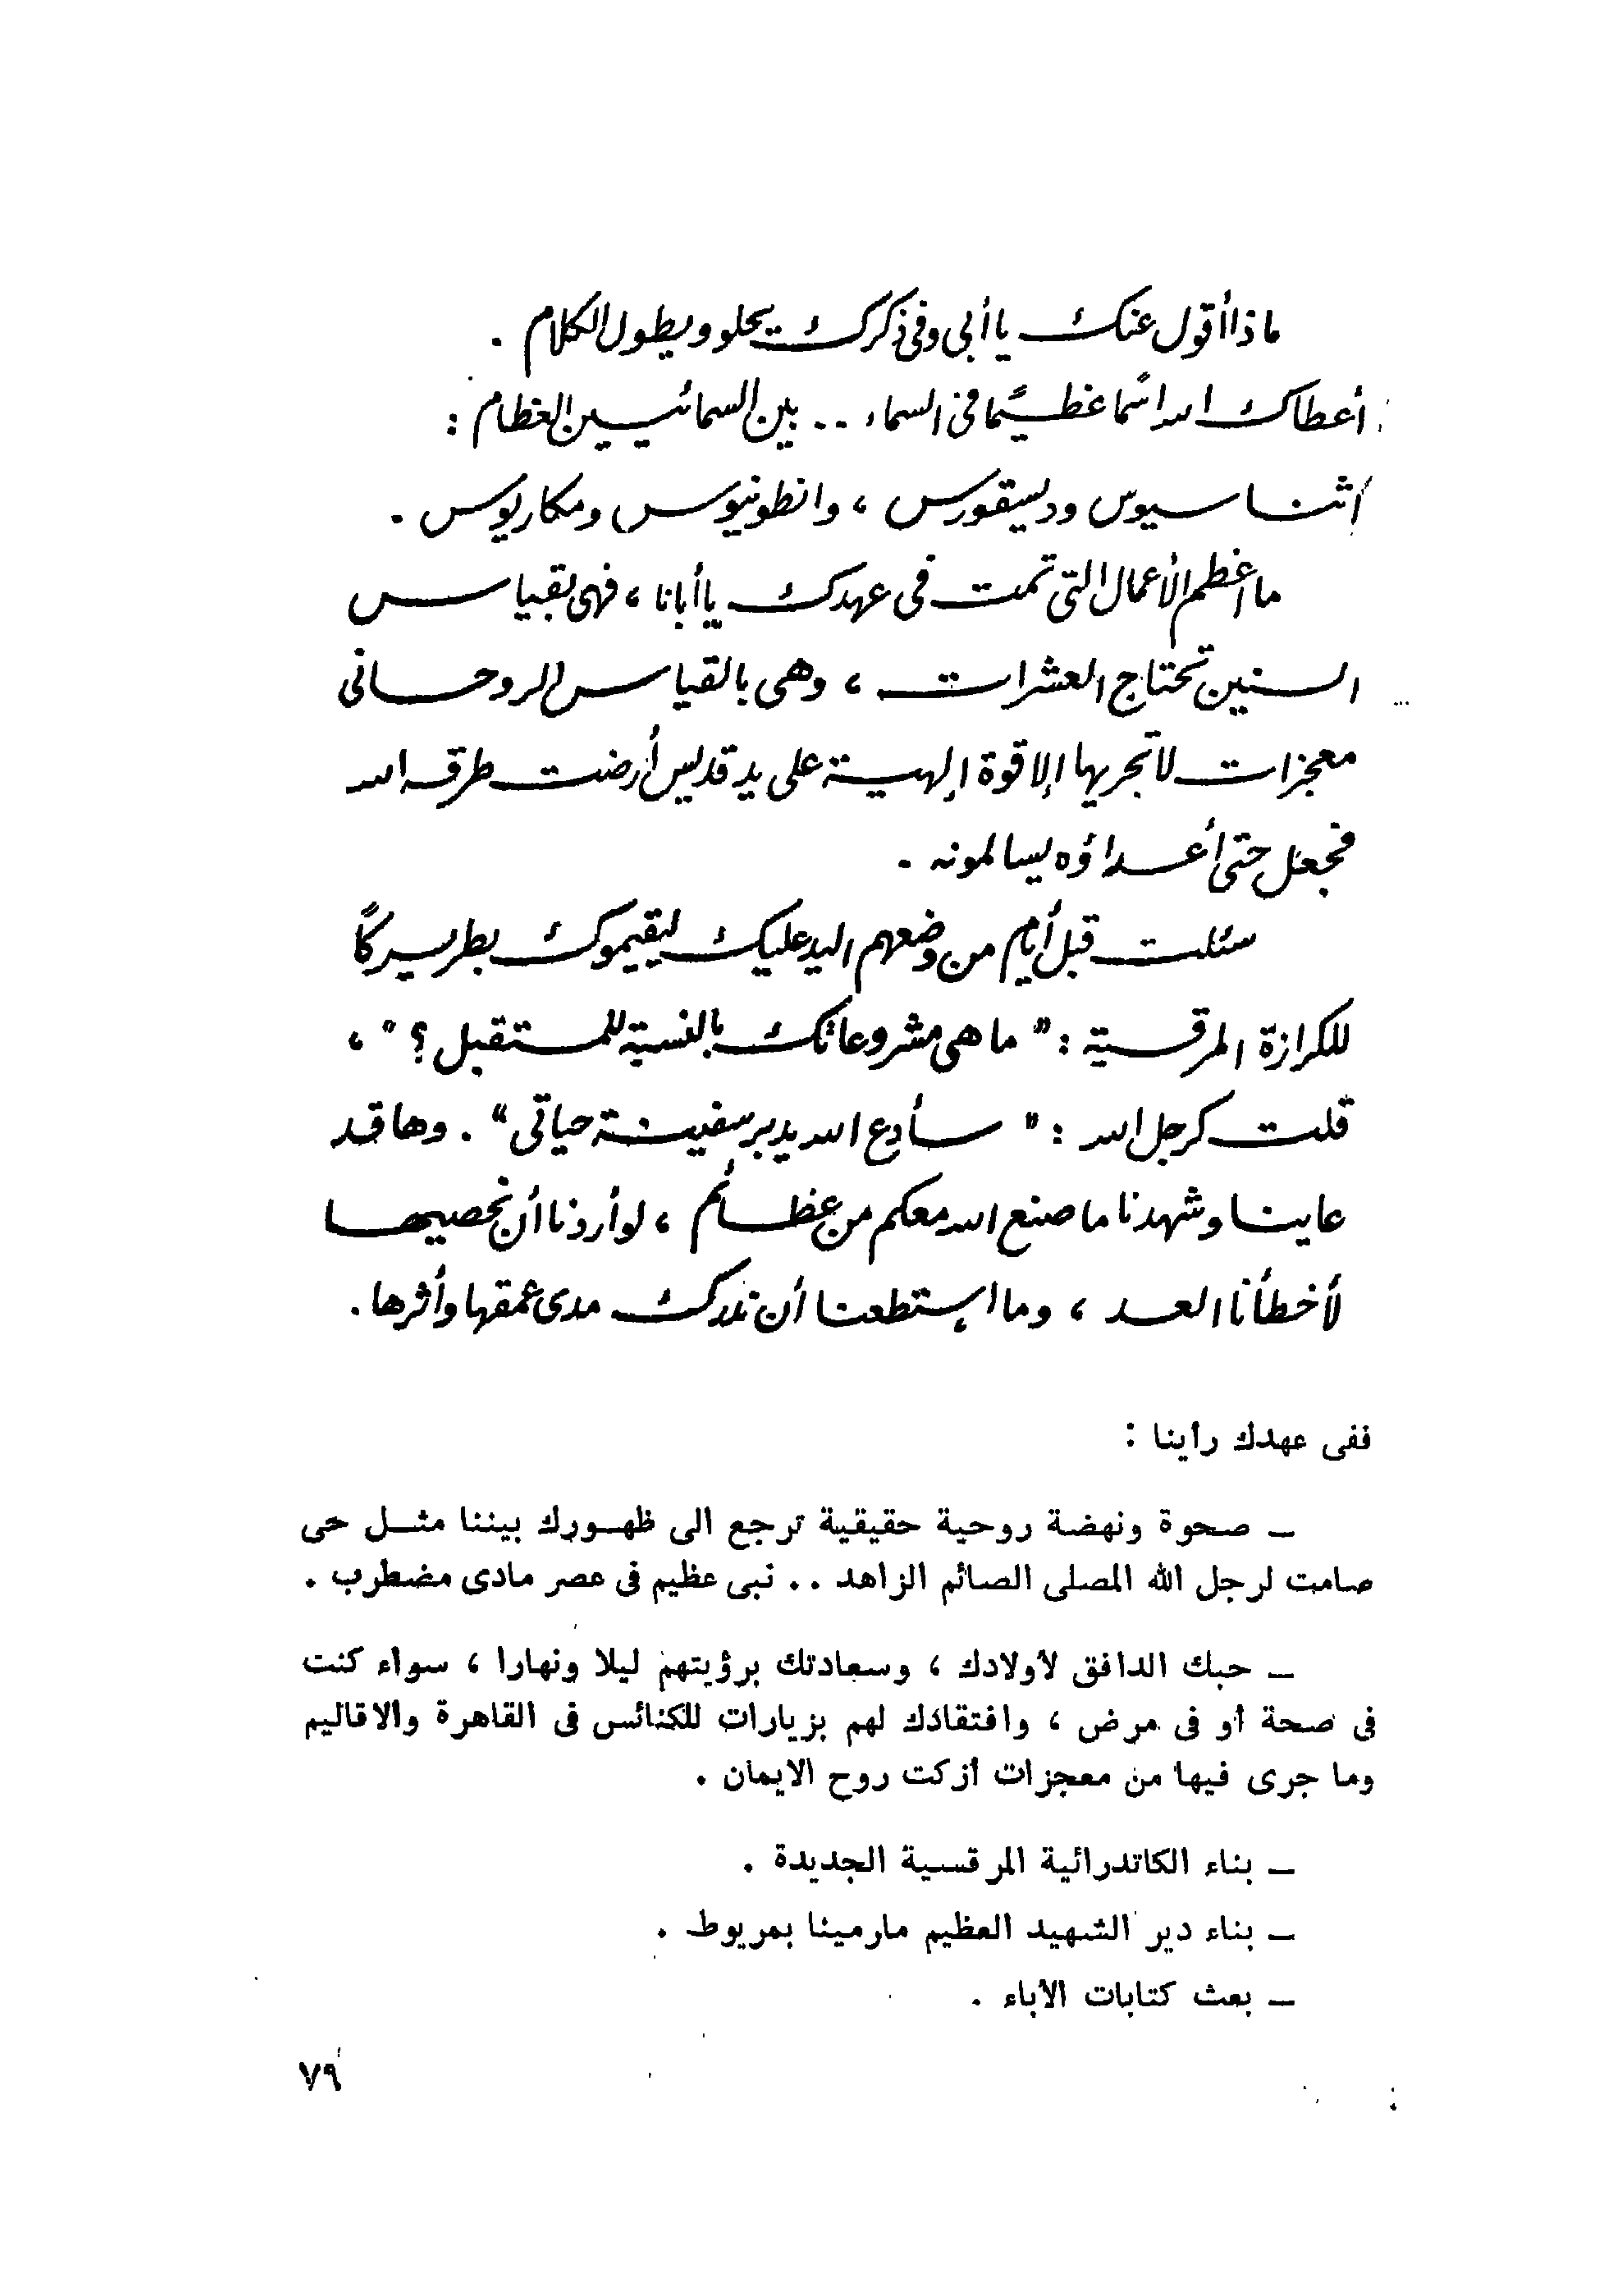 ماذا أقول عنك يا أبى وفى ذكرك يحلو ويطول الكلام .
أعطاك الله اسمًا عظيمًا فى السماء .. بين السمائيين العظام :
اثناسيوس وديسقورس ، وانطونيوس ومكاريوس .
ما اعظم الأعمال التى تمت فى عهدك يا أبانا ، فهى بقياس
السنين تحتاج العشرات ، وهى بالقياس الروحانى
معجزات لا تجريها إلا قوة إلهية على يد قديس أرضت طرقه الله
فجعل حتى أعداؤه يسالمونه .
سئلت قبل أيام من وضعهم اليد عليك ليقيموك بطريركًا
للكرازة المرقسية : " ما هى مشروعاتك بالنسبة للمستقبل ؟ " ،
قلت كرجل الله : " سأدع الله يدبر سفينة حياتى " . وها قد
عاينا وشهدنا ما صنع الله معكم من عظائم ، لو أردنا أن نحصيها
لأخطأنا العد ، وما إستطعنا أن ندرك مدى عمقها وأثرها .
ففى عهدك رأينا :
ـ صحوة ونهضة روحية حقيقية ترجع الى ظهورك بيننا مثل حى
صامت لرجل الله المصلى الصائم الزاهد .. نبى عظيم فى عصر مادى مضطرب .
ـ حبك الدافق لأولادك ، وسعادتك برؤيتهم ليلا ونهارا ، سواء كنت
فى صحة أو فى مرض ، وافتقادك لهم بزيارات للكنائس فى القاهرة والاقاليم
وما جرى فيها من معجزات أزكت روح الايمان .
ـ بناء الكاتدرائية المرقسية الجديدة .
ـ بناء دير الشهيد العظيم مارمينا بمريوط .
ـ بعث كتابات الآباء .
٧٩